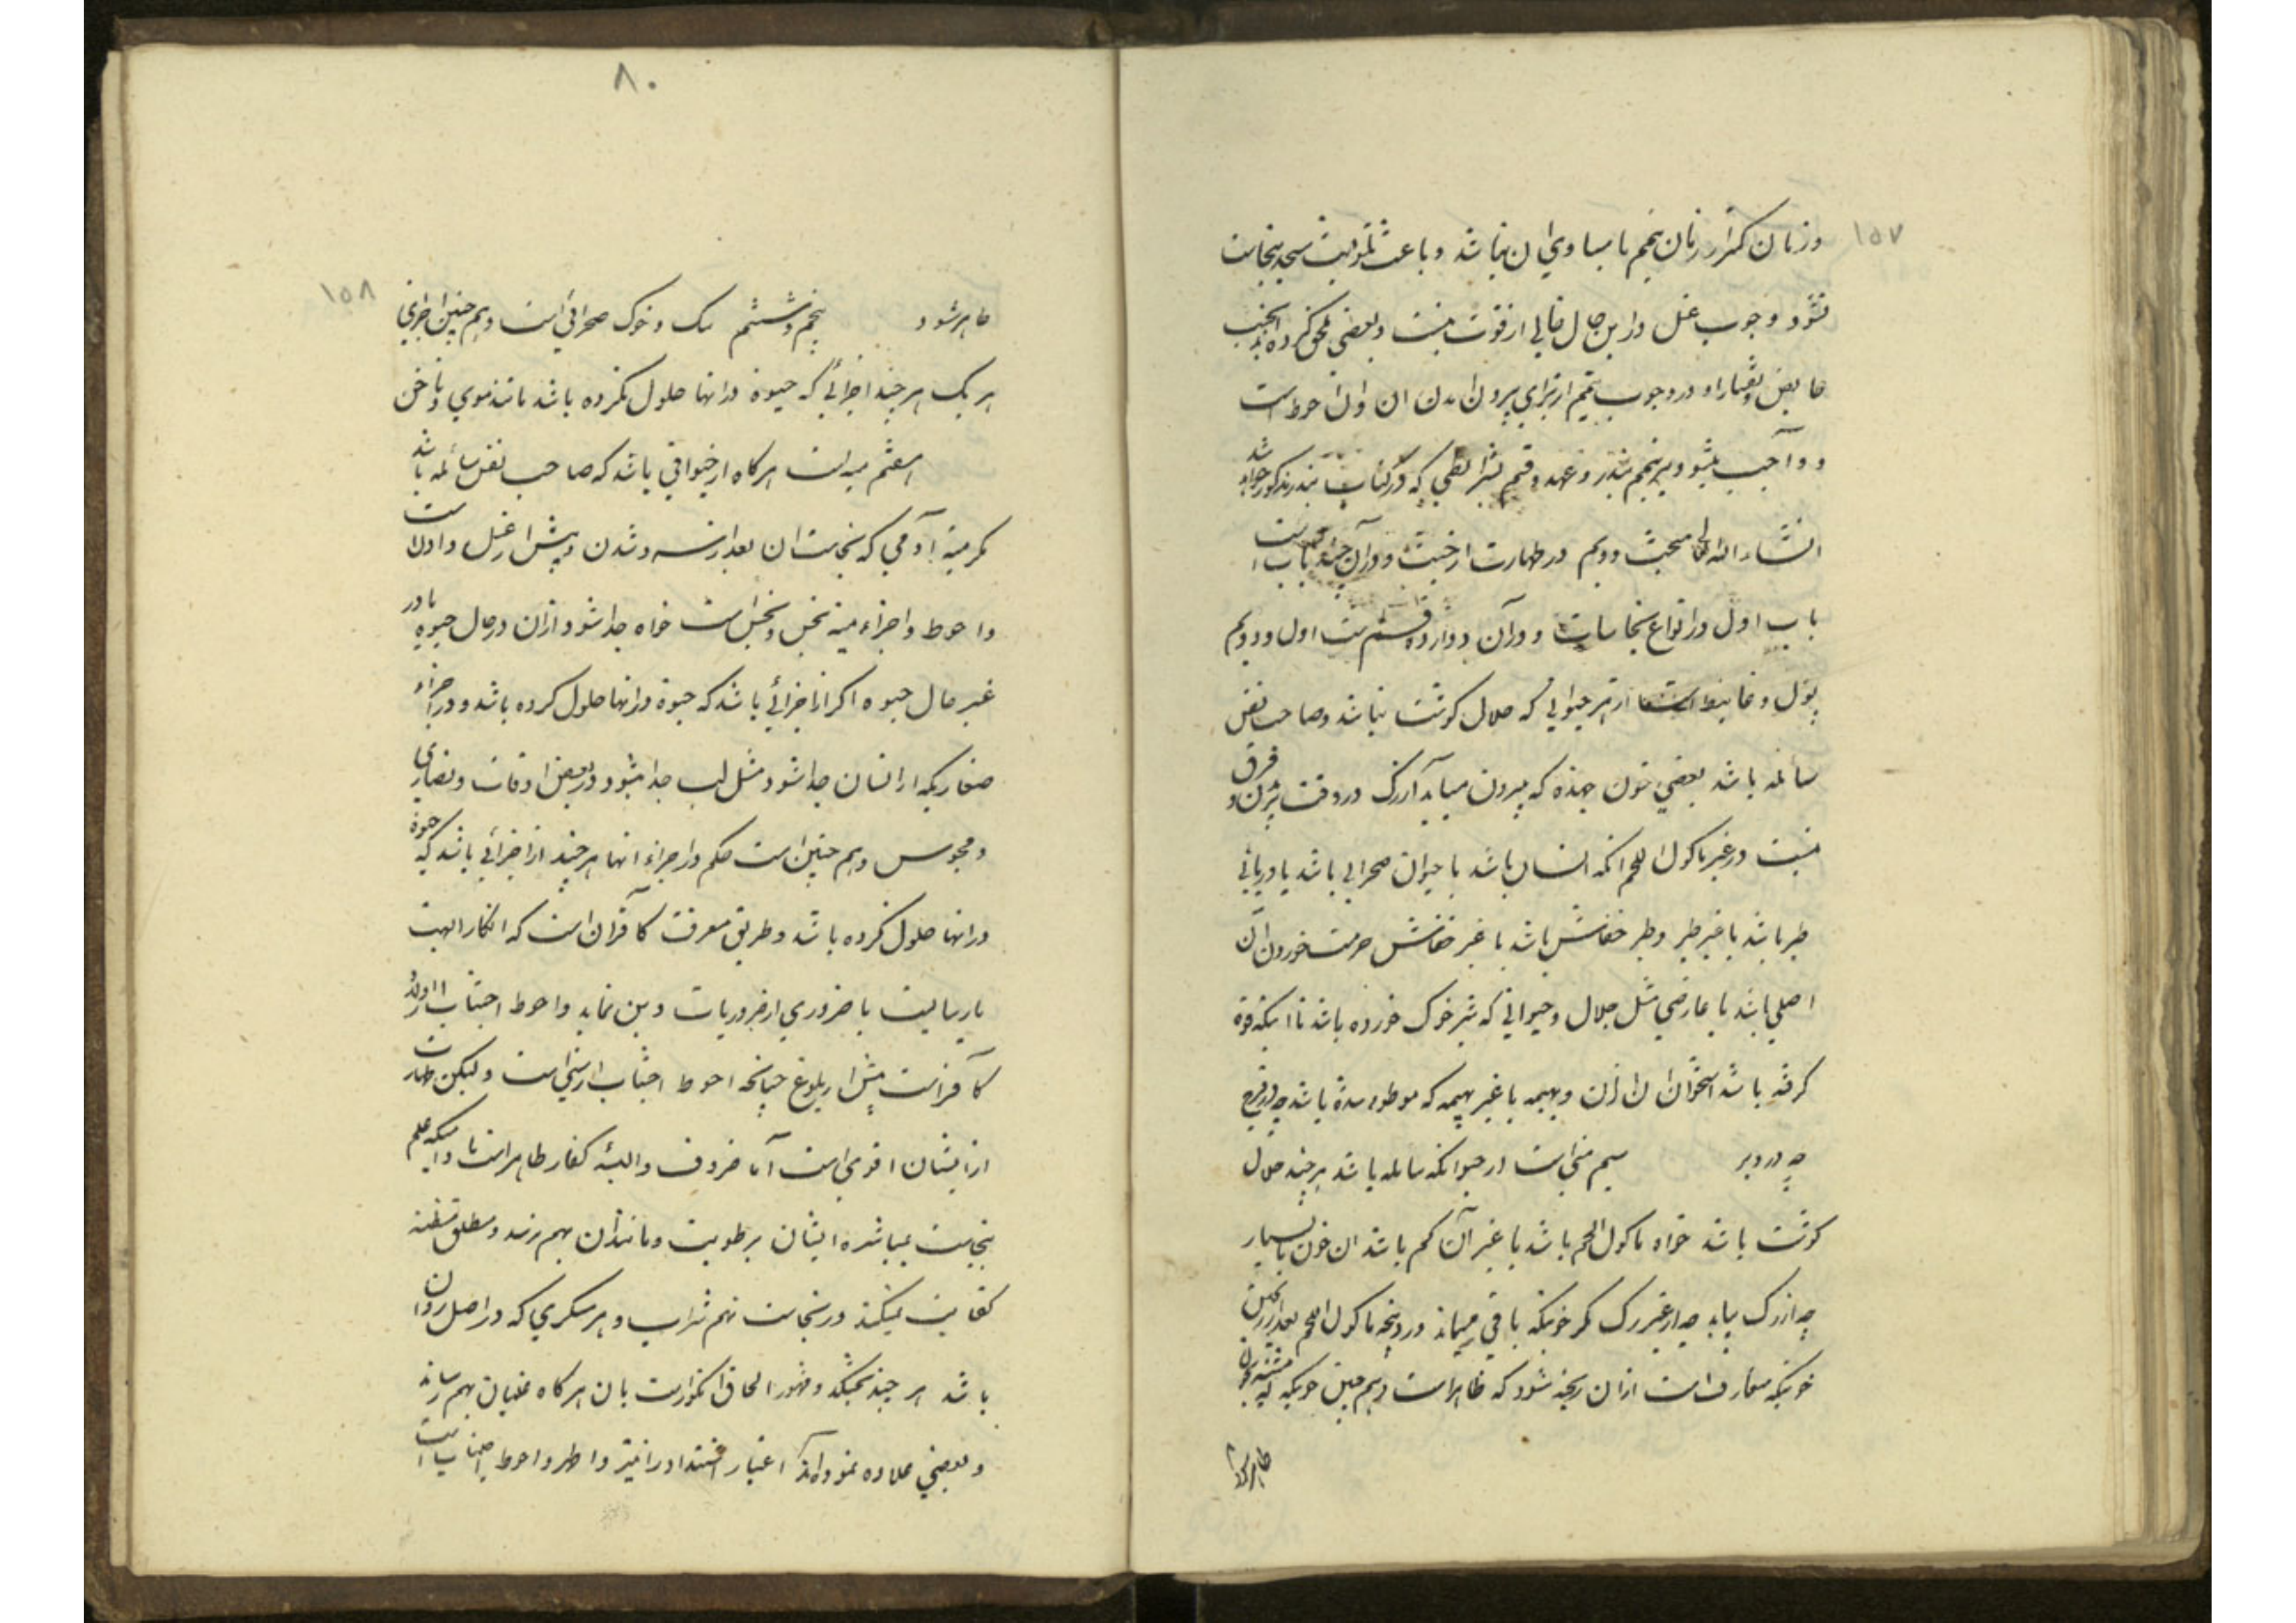 ۱۵۷
وزمان کمتر از زمان تیمم یا مساوی ان نباشد و باعث تلویث مسجد بنجاست
نشود و وجوب غسل در این حال خالی از قوت نیست و بعضی ملحق کرده‌اند بجنب
حایض و نفسا را و در وجوب تیمم از برای بیرون امدن ان و ان احوط است
و واجب میشود نیز تیمم بنذر و عهد و قسم بشرائطی که در کتاب نذر مذکور خواهد شد
انشاء الله مبحث دویم در طهارت از خبث و در آن چند باب است
باب اول در انواع نجاسات و در آن دوازده قسم است اول و دویم
بول و غایط است از هر حیوانی که حلال گوشت نباشد و صاحب نفس
سائله باشد یعنی خون جهنده که بیرون میاید از رگ در وقت بریدن و فرق
نیست در غیر ماکول اللحم انکه انسان باشد یا حیوان صحرایی باشد یا دریائی
طیر باشد یا غیر طیر و طیر خفاش باشد یا غیر خفاش حرمت خوردن آن
اصلی باشد یا عارضی مثل جلال و حیوانی که شیر خوک خورده باشد تا اینکه قوة
گرفته باشد استخوان ان از ان و بهیمه یا غیر بهیمه که موطوء شده باشد چه در قبل
چه در دبر سیم منی است از حیوانکه سائله باشد هر چند حلال
گوشت باشد خواه ماکول اللحم باشد یا غیر آن کم باشد ان خون یا بسیار
چه از رگ بیاید چه از غیر رگ مگر خونیکه باقی میماند در ذبیحه ماکول اللحم بعد از ریختن
خونیکه متعارف است از ان ریخته شود که طاهر است و هم چنین خونیکه
۸۰
۱۵۸
ظاهر شود پنجم و ششم سگ و خوک صحرائی است و هم چنین اجزای
هر یک هر چند اجزائی که حیوة در انها حلول نکرده باشد مانند موی و ناخن
هفتم میته است هرگاه از حیوانی باشد که صاحب نفس سائله باشد
مگر میته آدمی که نجاست ان بعد از سرد شدن و پیش از غسل و اولا است
و احوط و اجزاء میته نجس و نجس است خواه جدا شود از ان در حال حیوة یا در
غیر حال حیوة اگر از اجزائی باشد که حیوة در انها حلول کرده باشد و در اجزاء
صغاریکه از انسان جدا شود مثل لب جدا میشود در بعض اوقات و نصاری
و مجوس و هم چنین است حکم در اجزاء انها هر چند از اجزائی باشد که حیوة
در انها حلول نکرده باشد و طریق معرفت کافر ان است که انکار الهیت
یا رسالت یا ضروری از ضروریات دین نماید و احوط اجتناب از اولاد
کافر است پیش از بلوغ چنانچه احوط اجتناب از سنی است و لیکن طهارت
از ایشان اقوی است اما ظروف و البسهٔ کفار طاهر است تا اینکه علم
بنجاست بمباشره ایشان برطوبت و مانند ان بهم رسد و مطلق مظنه
کفایت نمیکند در نجاست نهم شراب و هر مسکری که در اصل روان
باشد هر چند بخشکد و مشهور الحاق اب انگور است بان هرگاه غلیان بهم رساند
و بعضی علاوه نموده‌اند اعتبار اشتداد را نیز و اظهر و احوط اجتناب است